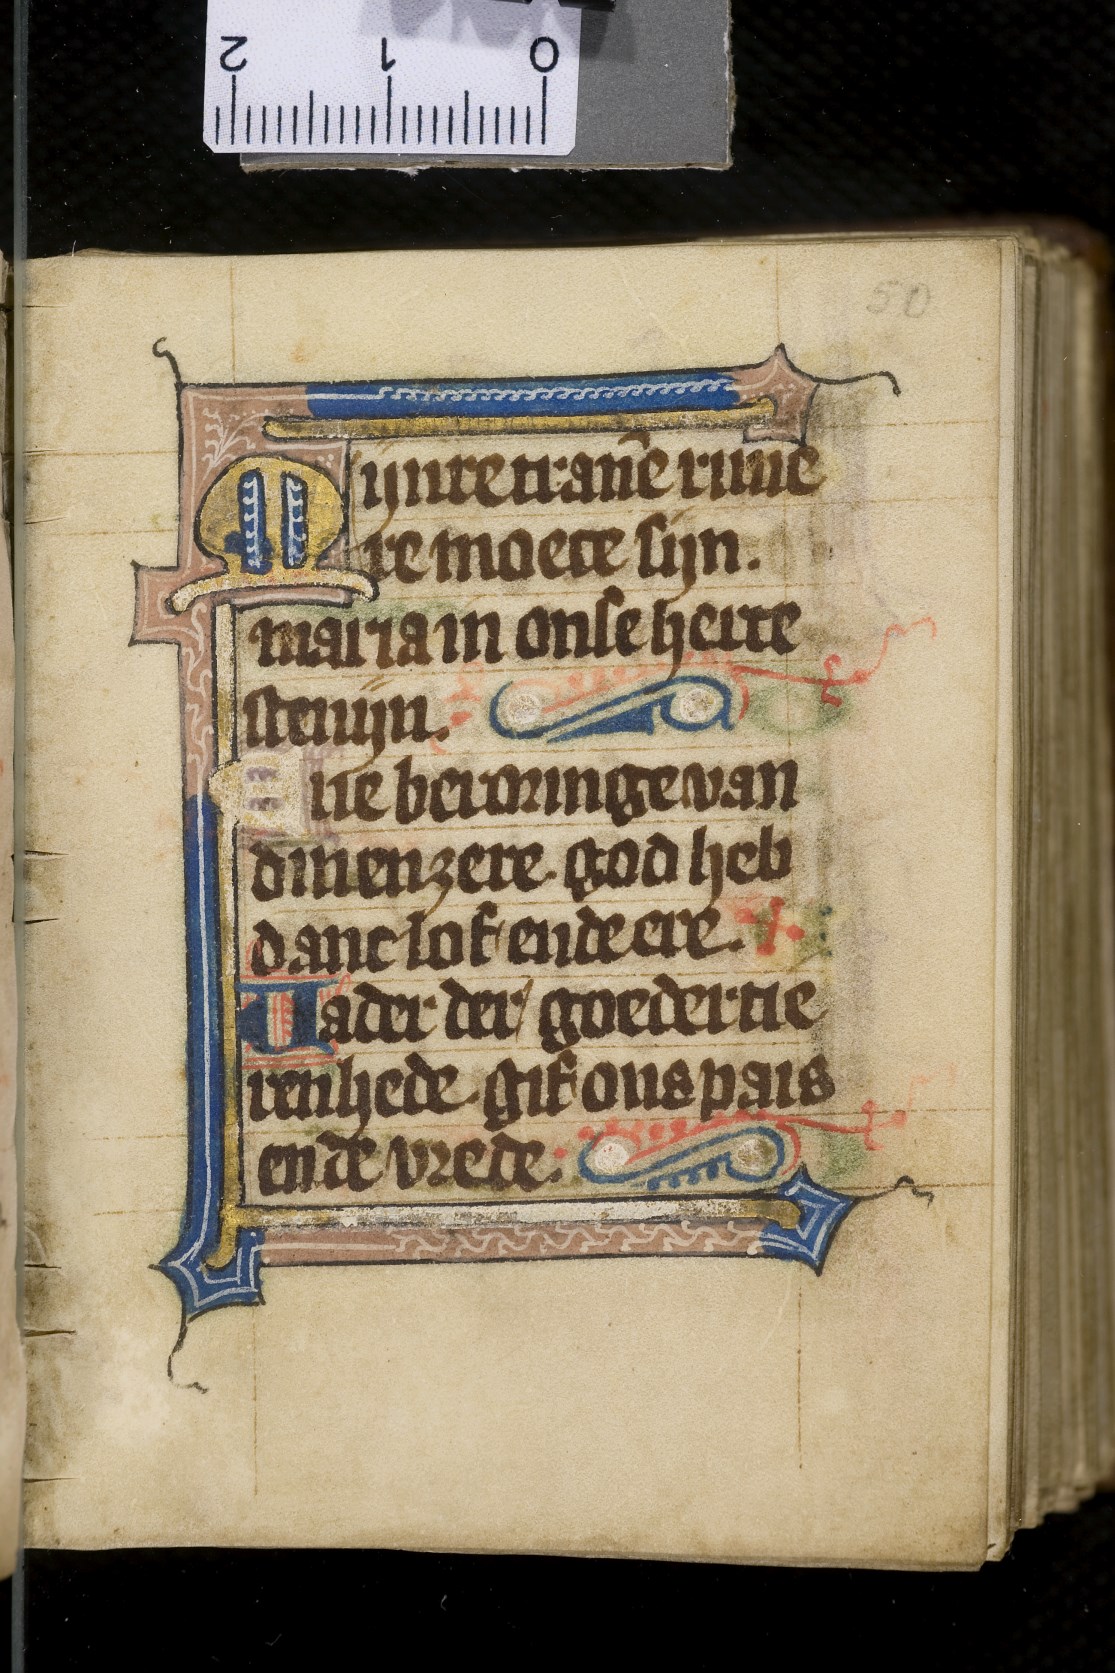 2 1 0
50
Mijnre tranē riuie
re moete sijn.
maria in onse herte
stemijn.
ne beroringe van
dinen zere. god heb
danc lof ende ere.
Uader der goedertie
renhede. gif ons pais
ende vrede.